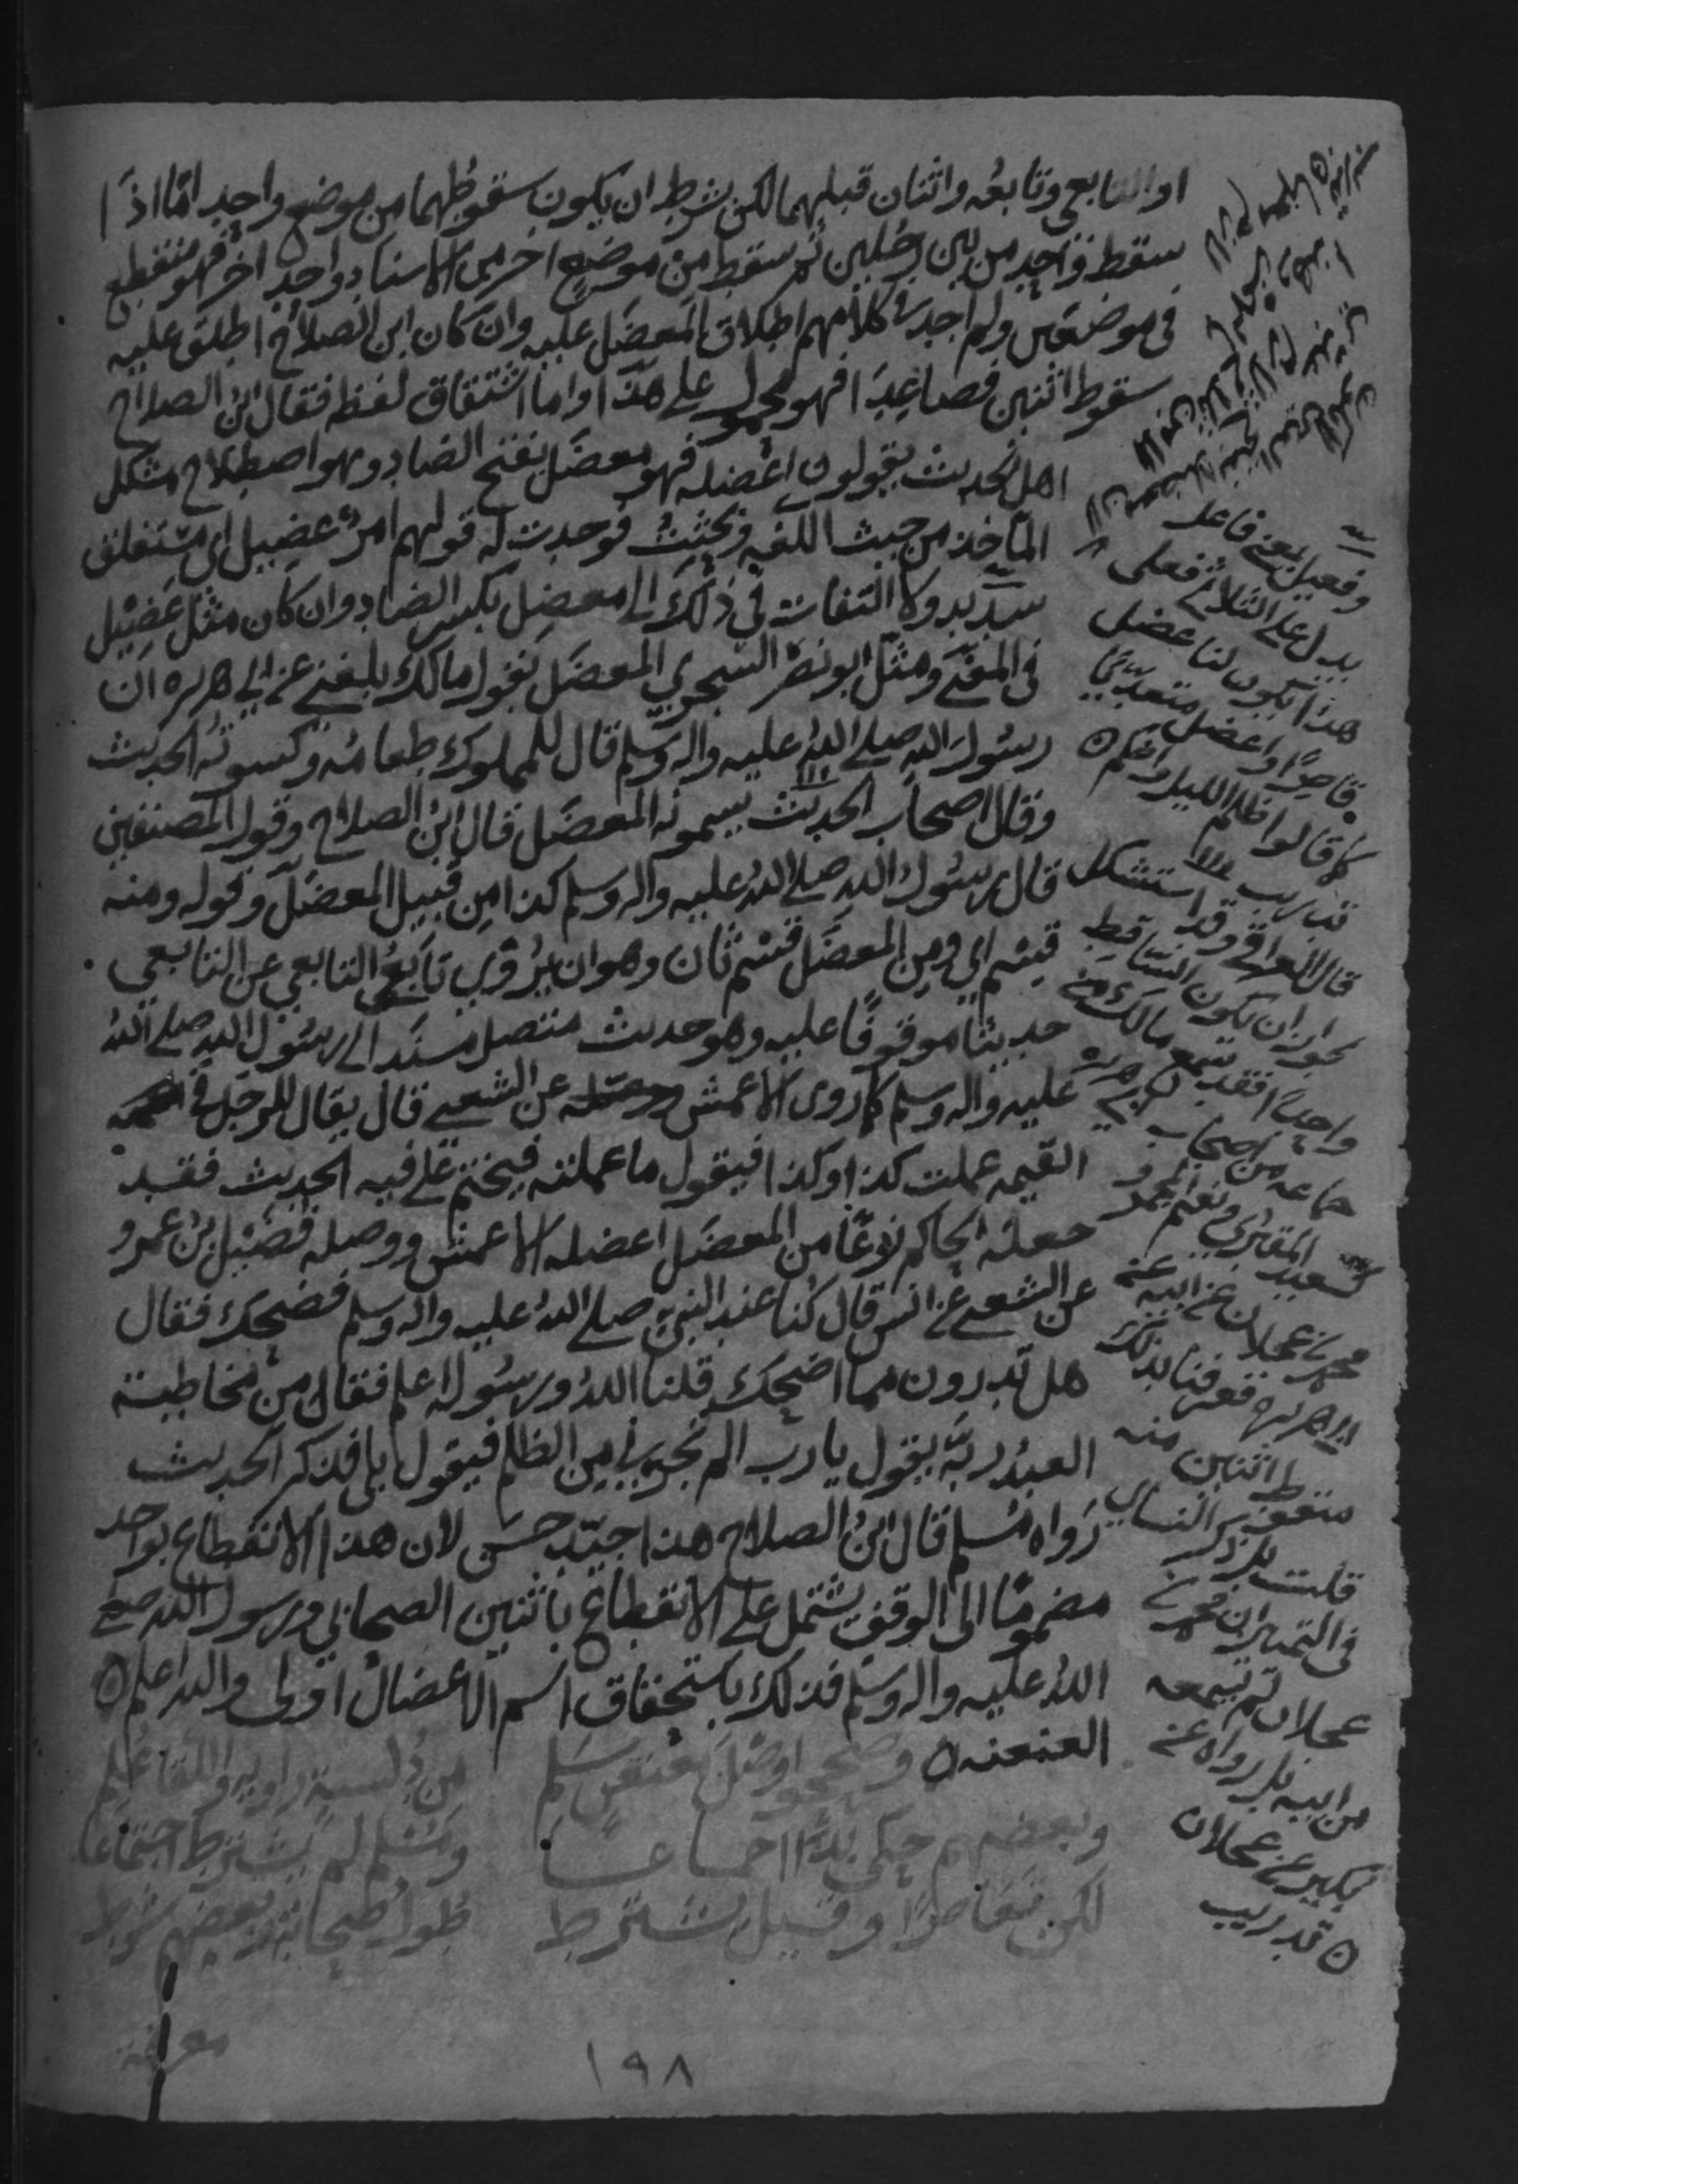 او التابعي وتابعه واثنان قبلهما لكن بشرط ان يكون سقوطهما من موضع واحد اما اذا
سقط واحد من بين رجلين ثم سقط من موضع اخر من الاسناد واحد اخر فهو منقطع
في موضعين ولم اجد في كلامهم اطلاق المعضل عليه وان كان ابن الصلاح اطلق عليه
سقوط اثنين فصاعدا فهو محمول على هذا واما اشتقاق لفظه فقال ابن الصلاح
اهل الحديث يقولون اعضله فهو معضل بفتح الضاد وهو اصطلاح مشكل
المأخذ من حيث اللغه وبحثت فوجدت له قولهم امر عضيل اي مستغلق
شديد ولا التفات في ذلك الى معضل بكسر الضاد وان كان مثل عضيل
في المعنى ومثل ابو نصر السجزي المعضل بقول مالك بلغني عن ابي هريره ان
رسول الله صلى الله عليه واله وسلم قال للمملوك طعامه وكسوته الحديث
وقال اصحاب الحديث يسمونه المعضل قال ابن الصلاح وقول المصنفين
قال رسول الله صلى الله عليه واله وسلم كذا من قبيل المعضل وقوله ومنه
قسم اي ومن المعضل قسم ثان وهو ان يروي تابع التابعي عن التابعي
حديثا موقوفا عليه وهو حديث متصل مسند الى رسول الله صلى الله
عليه واله وسلم كما روى الاعمش عن الشعبي قال يقال للرجل في
القيمه عملت كذا وكذا فيقول ما عملته فيختم على فيه الحديث فقد
جعله الحاكم نوعا من المعضل اعضله الاعمش ووصله فضيل بن عمرو
عن الشعبي عن انس قال كنا عند النبي صلى الله عليه واله وسلم فضحك فقال
هل تدرون مما اضحك قلنا الله ورسوله اعلم فقال من مخاطبة
العبد ربه يقول يا رب الم تجرني من الظلم فيقول بلى فذكر الحديث
رواه مسلم قال ابن الصلاح هذا جيد حسن لان هذا الانقطاع بواحد
مضموما الى الوقف يشتمل على الانقطاع باثنين الصحابي ورسول الله صلى
الله عليه واله وسلم فذلك باستحقاق اسم الاعضال اولى والله اعلم
العنعنه
وصححوا وصل معنعن سلم من دلسة راويه واللقا علم
وبعضهم حكى بذا اجماعا ومسلم لم يشترط اجتماعا
لكن تعاصرا وقيل يشترط طول صحابة وبعضهم شرط
معرفة
١٩٨
وفعيل بمعنى فاعل
يدل على الثلاثي فعلى
هذا يكون لنا عضل
قاصرا واعضل متعديا
كما قالوا ظلم الليل واظلم
تدريب
قال العراقي وقد استشكل
لجواز ان يكون الساقط
واحدا فقد سمع مالك من
جماعه من اصحاب ابي هريره
كسعيد المقبري ونعيم المجمر و
محمد بن عجلان عن ابيه عنه
ابي هريره فعرفنا بذلك
سقوط اثنين منه
قلت بل ذكر النسائي
في التمييز ان محمد بن
عجلان لم يسمعه
من ابيه بل رواه عن
بكير عن عجلان
تدريب